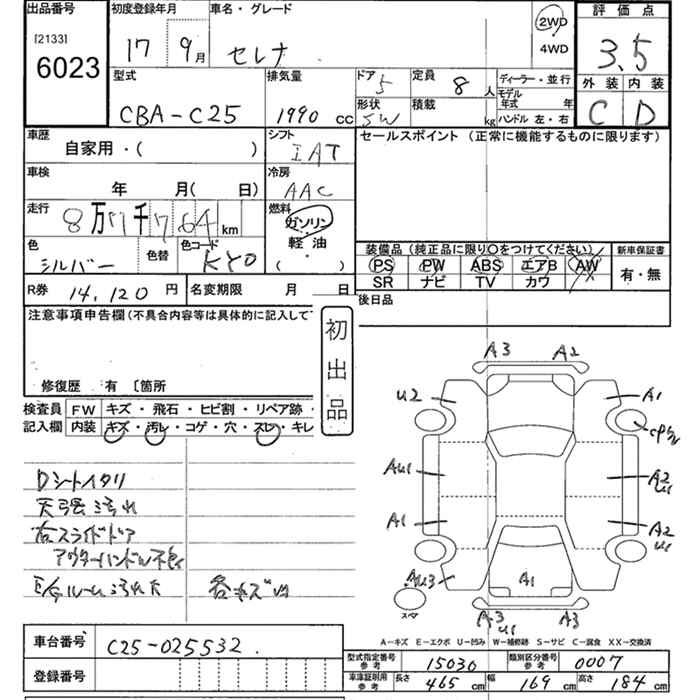 出品番号 初度登録年月 車名・グレード 評価点
[2133]
6023
17 9月 セレナ 2WD 4WD 3.5
型式 排気量 ドア 定員 ディーラー・並行 外装 内装
CBA-C25 1990 cc 5 8人 モデル年式 年 C D
形状 積載 ハンドル 左・右
SW kg
車歴 シフト セールスポイント(正常に機能するものに限ります)
自家用・( ) IAT
車検 冷房
年 月( 日) AAC
走行 燃料
8万7千764km ガソリン
軽油
( )
色 色替 色コード 装備品(純正品に限り○をつけてください) 新車保証書
シルバー KY0 PS PW ABS エアB AW 有・無
SR ナビ TV カワ
R券 14,120円 名変期限 月 日 後日品
注意事項申告欄(不具合内容等は具体的に記入して
初出品
修復歴 有〔箇所
検査員 FW キズ・飛石・ヒビ割・リペア跡・
記入欄 内装 キズ・汚レ・コゲ・穴・スレ・キレ
A3 A2
U2 A1
AU1 A2
U1
A1 A2
U1
AU3 A1
スマ A3 U1 A3
Dシートヘタリ
天張汚れ
右スライドドア
アウターハンドル不良
各キズU1
A-キズ E-エクボ U-凹み W-補修跡 S-サビ C-腐食 XX-交換済
車台番号 C25-025532
型式指定番号 参考 15030 類別区分番号 参考 0007
登録番号 車庫証明用 参考 長さ 465cm 幅 169cm 高さ 184cm